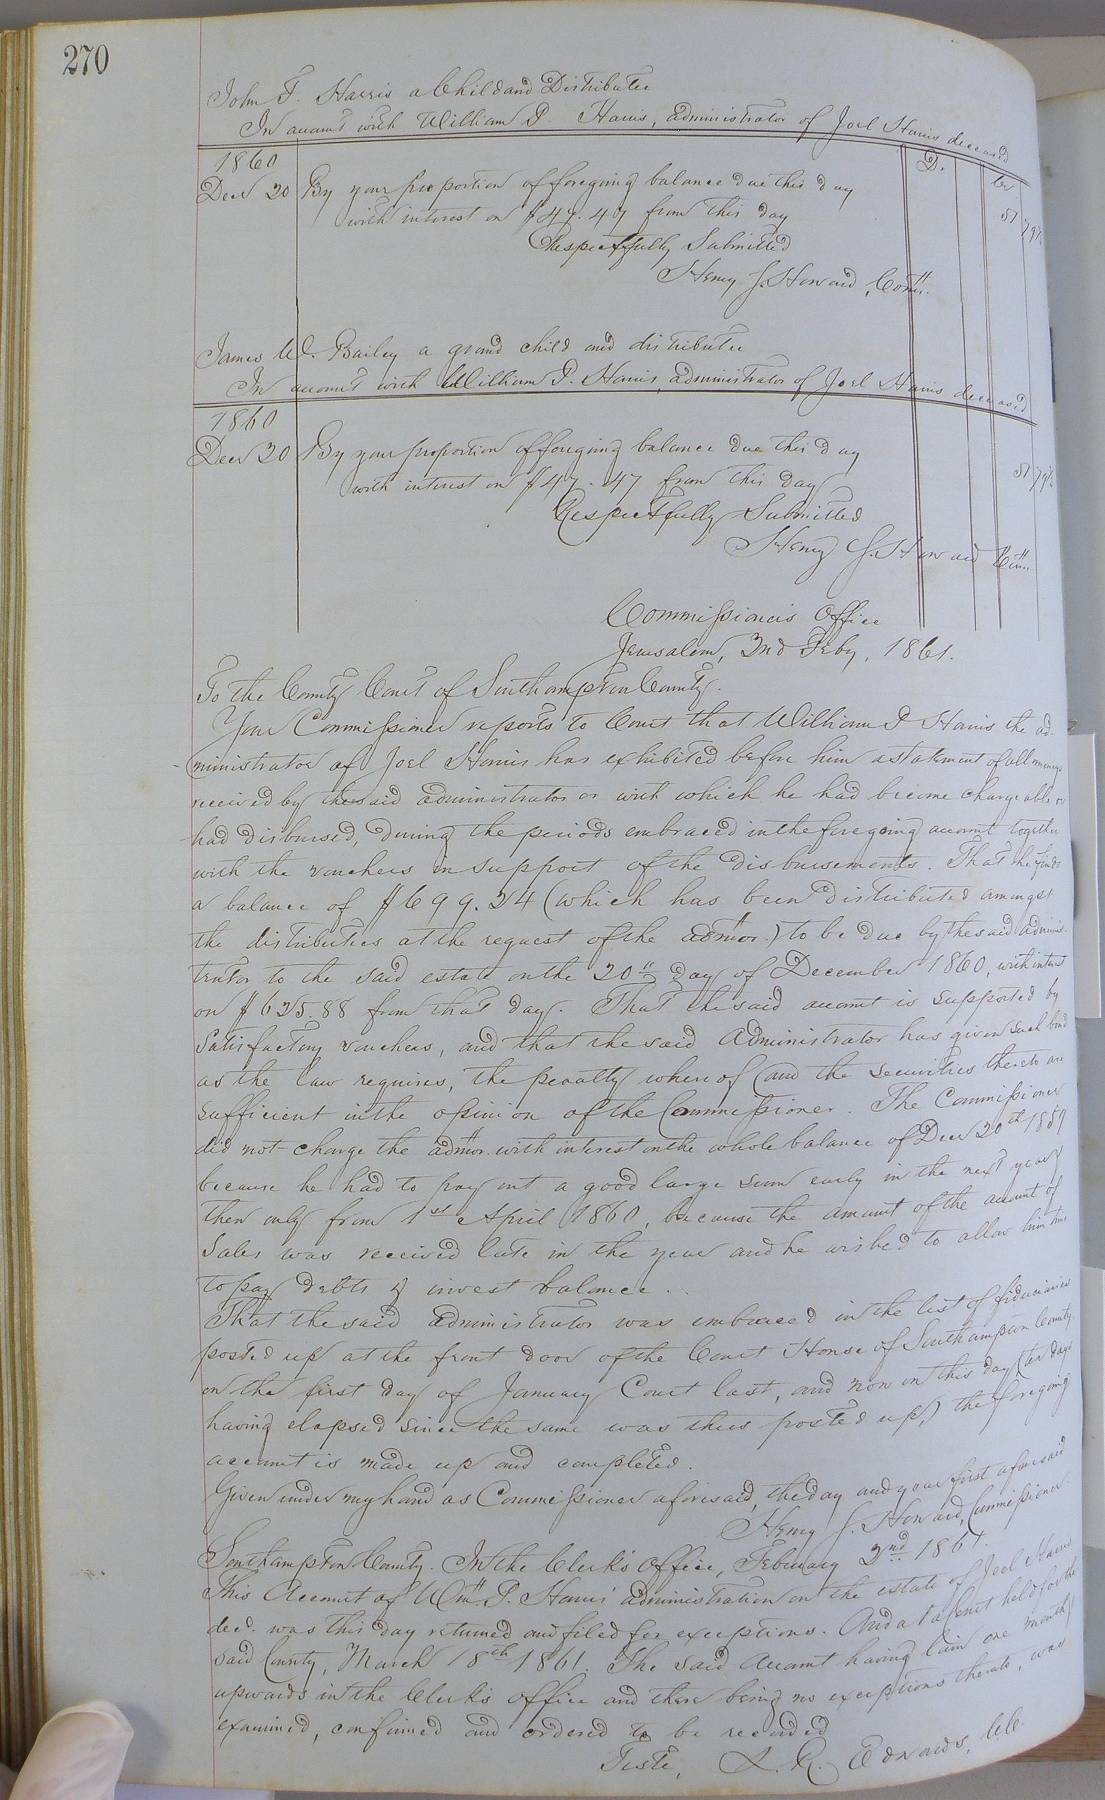 270
John T. Harris a Child and Distributee
In account with William P. Harris, administrator of Joel Harris deceased
1860 D. Cr
Decr 20 By your proportion of foregoing balance due this day
with interest on $47.47 from this day 51
Respectfully Submitted
Henry J. Howard, Comr.
James W. Bailey a grand child and distributee
In account with William P. Harris, administrator of Joel Harris deceased
1860
Decr 20 By your proportion of foregoing balance due this day
with interest on $47.47 from this day 51
Respectfully Submitted
Henry J. Howard Comr.
Commissioner's Office
Jerusalem, 2nd Feby, 1861.
To the County Court of Southampton County.
Your Commissioner reports to Court that William P Harris the ad-
ministrator of Joel Harris has exhibited before him a statement of all moneys
received by the said administrator or with which he had become chargeable or
had disbursed, during the periods embraced in the foregoing account together
with the vouchers in support of the disbursements. That he finds
a balance of $699.24 (which has been distributed amongst
the distributees at the request of the admor.) to be due by the said adminis-
trator to the said estate on the 20th day of December 1860, with interest
on $625.88 from that day. That the said account is supported by
satisfactory vouchers, and that the said Administrator has given such bond
as the law requires, the penalty whereof (and the securities thereto are
sufficient in the opinion of the Commissioner. The Commissioner
did not charge the admor. with interest on the whole balance of Decr 20th 1859
because he had to pay out a good large sum early in the next year
then only from 1st April 1860, because the amount of the account of
Sales was received late in the year and he wished to allow him time
to pay debts & invest balance.
That the said administrator was embraced in the list of fiduciaries
posted up at the front door of the Court House of Southampton County
on the first day of January Court last, and now on this day (ten days
having elapsed since the same was thus posted up,) the foregoing
account is made up and completed.
Given under my hand as Commissioner aforesaid, the day and year first aforesaid
Henry J. Howard, Commissioner
Southampton County. In the Clerk's Office, February 2nd 1861.
This Account of Wm. P. Harris' administration on the estate of Joel Harris
decd. was this day returned and filed for exceptions. And at a Court held for the
said County, March 18th 1861. The said Account having lain one month &
upwards in the Clerk's office and there being no exceptions thereto, was
examined, confirmed and ordered to be recorded
Teste, L. R. Edwards, C.C.